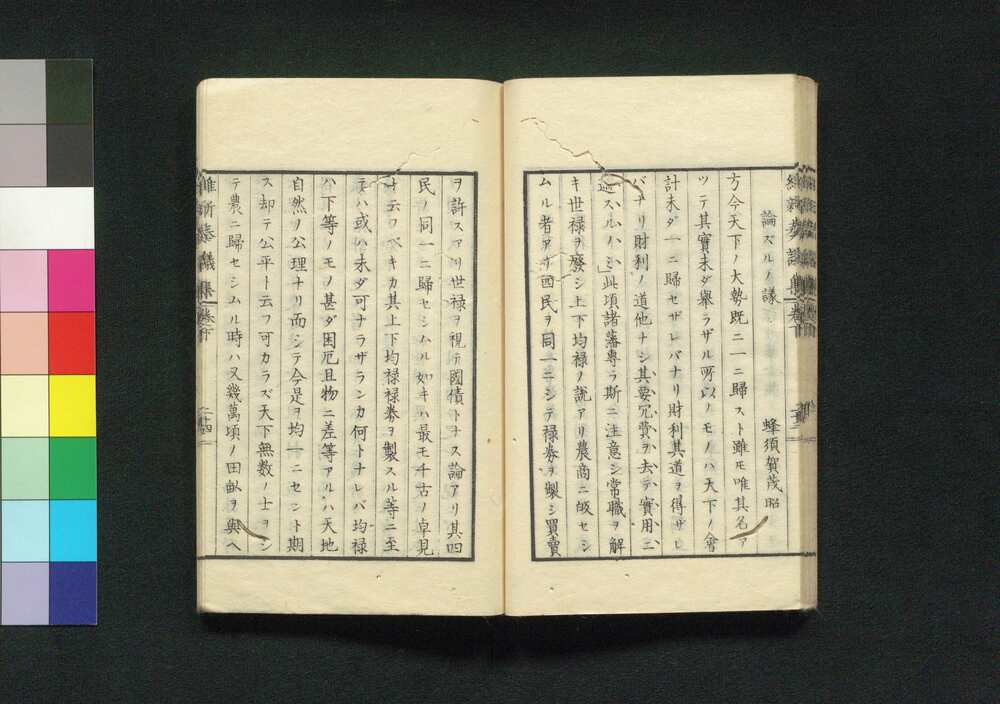 論ズルノ議
蜂須賀茂昭
方今天下ノ大勢既ニ一ニ歸スト雖モ唯其名ア
ツテ其實未ダ舉ラザル所以ノモノハ天下ノ會
計未ダ一ニ歸セザレバナリ財利其道ヲ得ザレ
バナリ財利ノ道他ナシ其要冗費ヲ去テ實用ニ
スルノミ此頃諸藩專ラ斯ニ注意シ常職ヲ解
キ世禄ヲ廢シ上下均禄ノ說アリ農商ニ皈セシ
ムル者アリ四民ヲ同一ニシテ禄券ヲ製シ買賣
ヲ許スアリ世禄ヲ視テ國債トナス論アリ其四
民ノ同一ニ歸セシムル如キハ最モ千古ノ卓見
ト云フベキカ其上下均禄禄券ヲ製スル等ニ至
テハ或ハ未ダ可ナラザランカ何トナレバ均禄
ハ下等ノモノ甚ダ困厄且物ニ差等アルハ天地
自然ノ公理ナリ而シテ今是ヲ均一ニセント期
ス却テ公平ト云フ可カラズ天下無数ノ士ヲシ
テ農ニ歸セシムル時ハ又幾萬頃ノ田畝ヲ與ヘ
維新奏議集 卷下 二十四